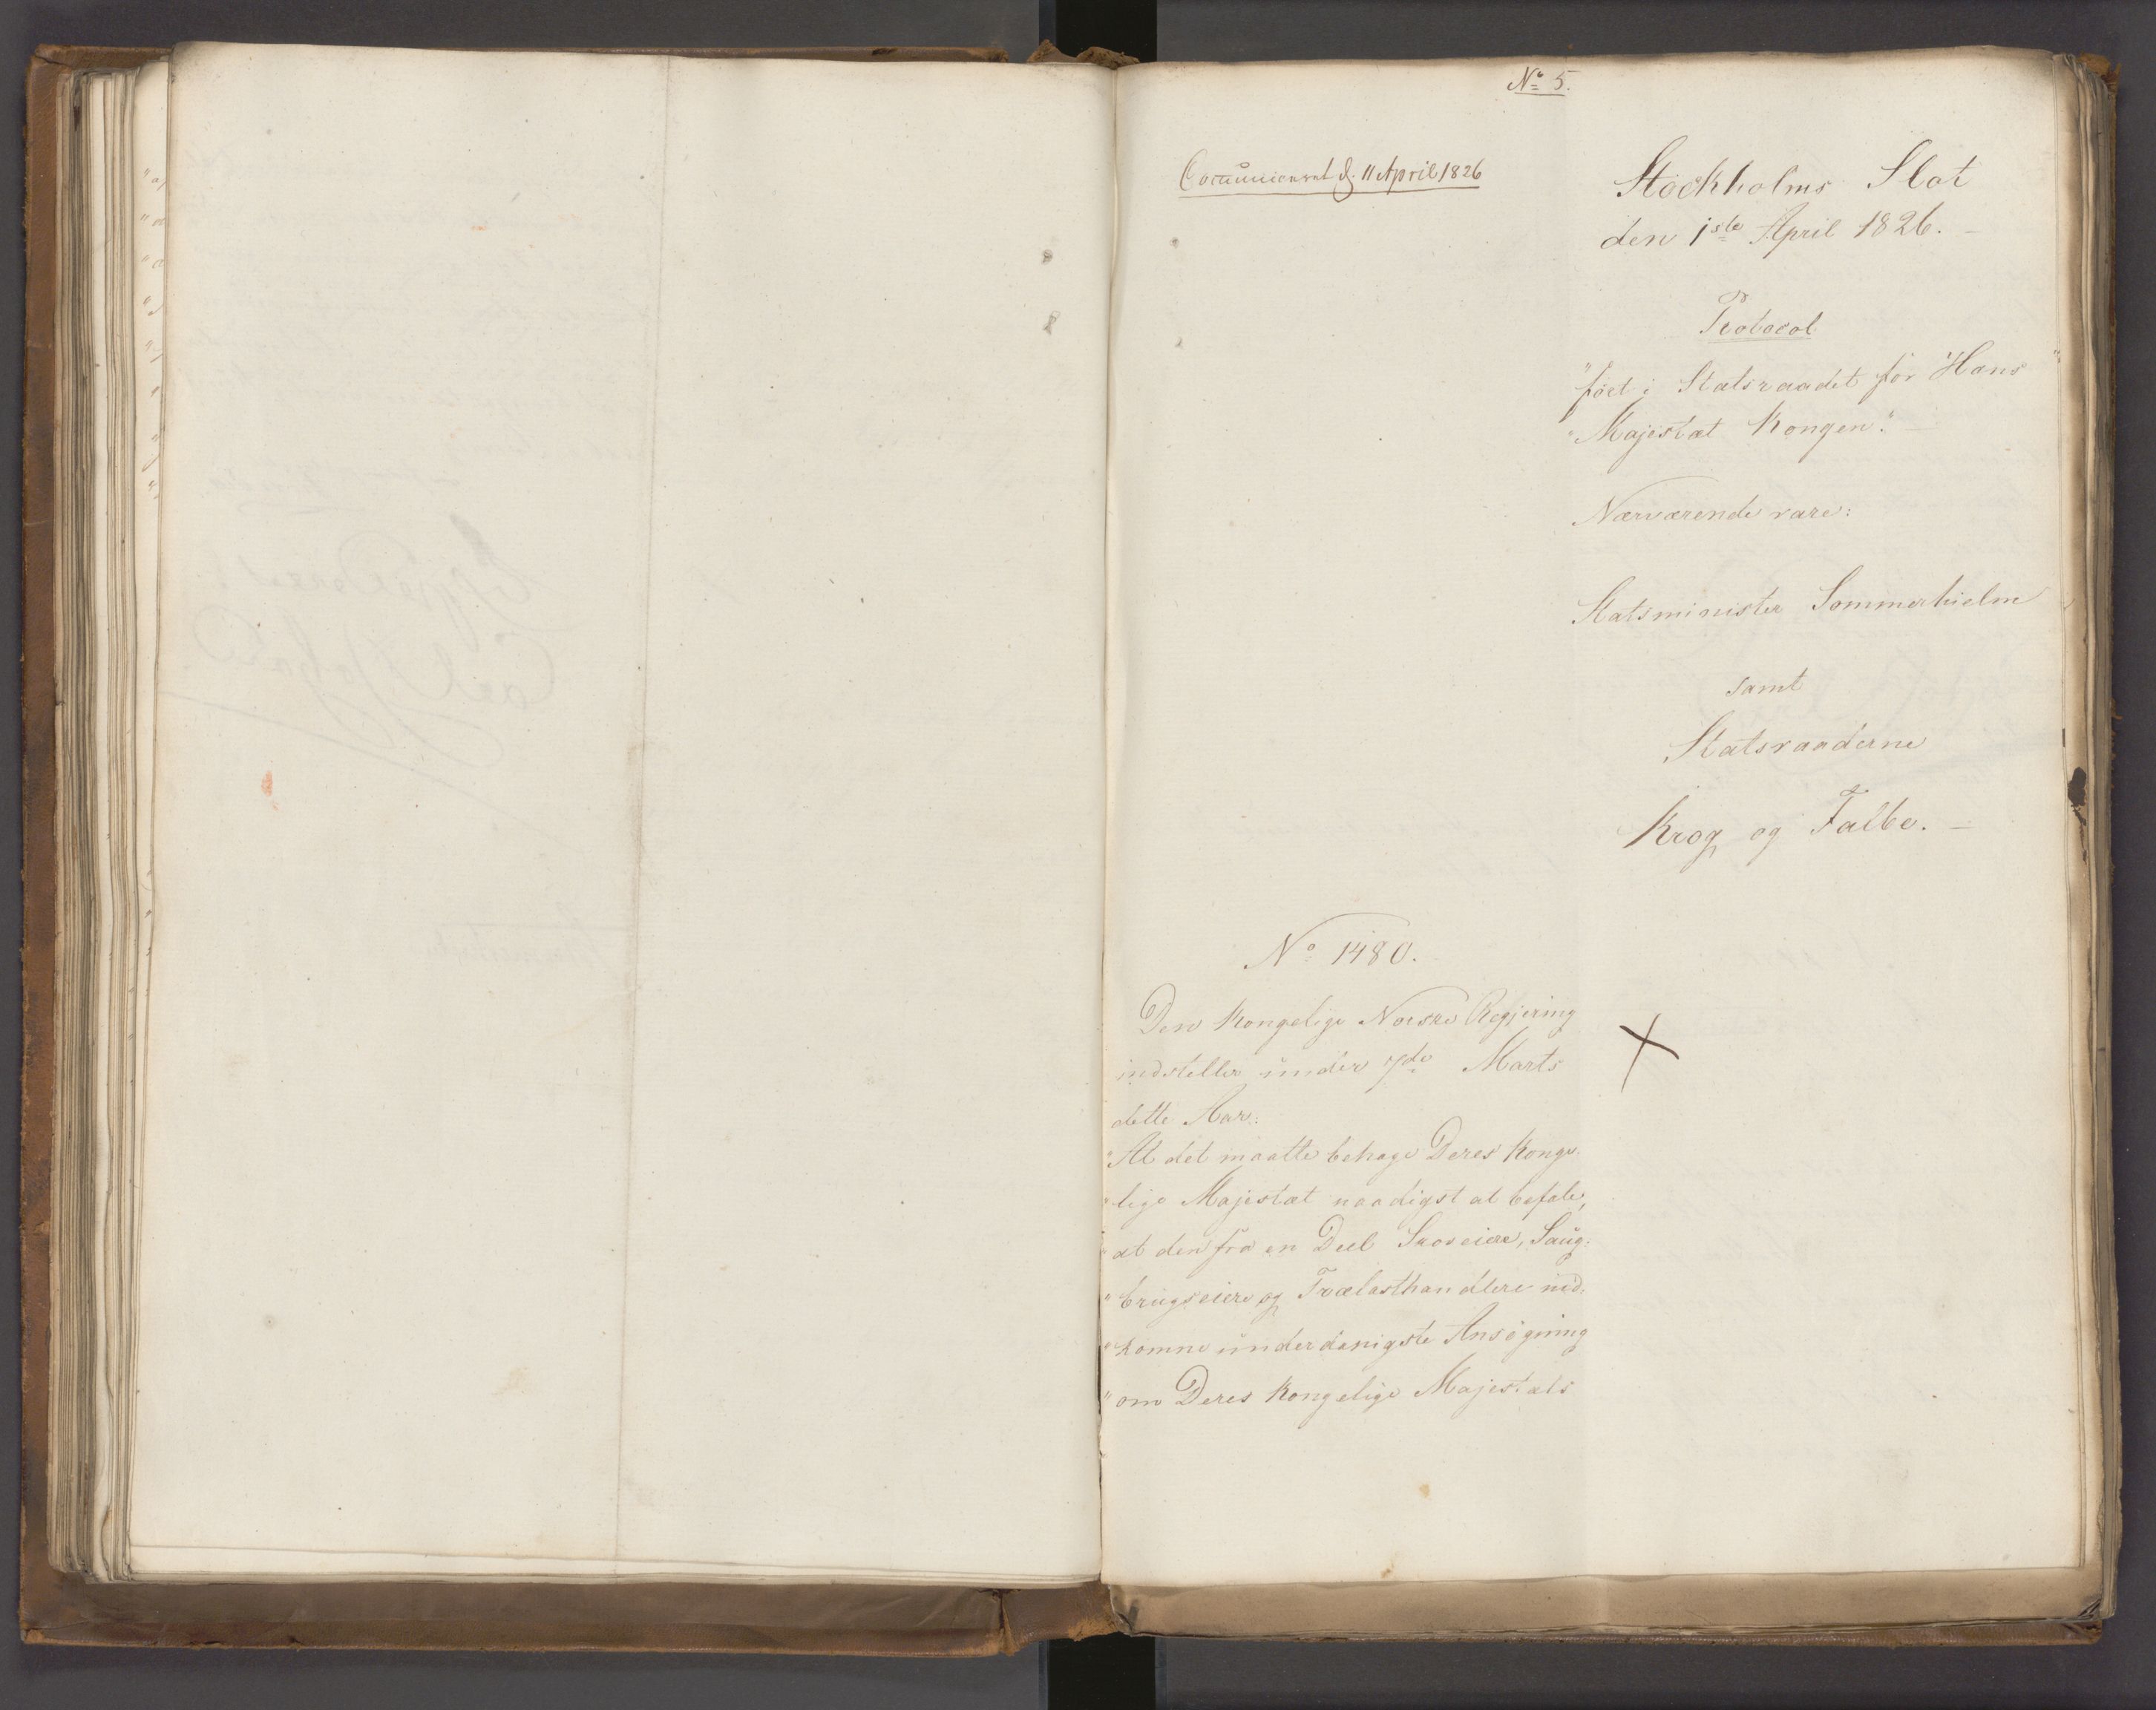 No 5.
Communiceret d. 11 April 1826
Stockholms Slot
den 1ste April 1826. –
Protocol
"ført i Statsraadet for Hans "
"Majestæt Kongen". –
Nærværende vare:
Statsminister Sommerhielm
samt
Statsraaderne
Krog og Falbe. –
No 1480.
Den Kongelige Norske Regjering
indstiller under 7de Marts
dette Aar:
"At det maatte behage Deres Konge-
"lige Majestæt naadigst at befale,
"at den fra en Deel Skoveiere, Saug-
"brugseiere og Trælasthandlere ind-
"komne underdanigste Ansøgning
"om Deres Kongelige Majestæts